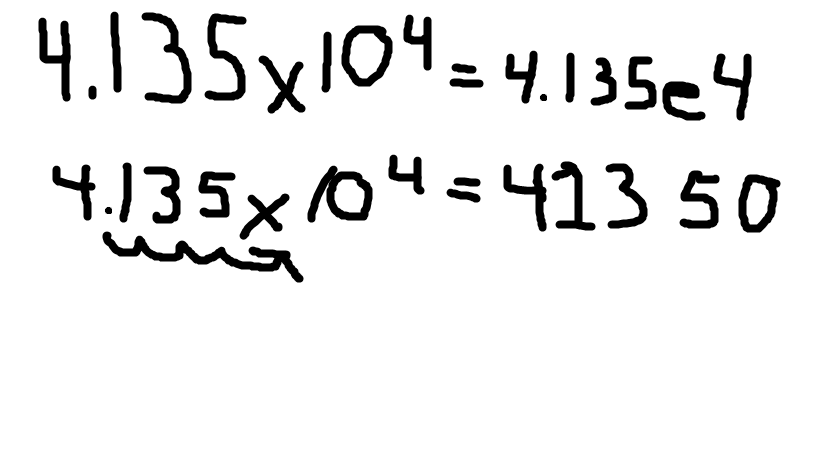 4.135x10⁴ = 4.135e4
4.135x10⁴ = 41350